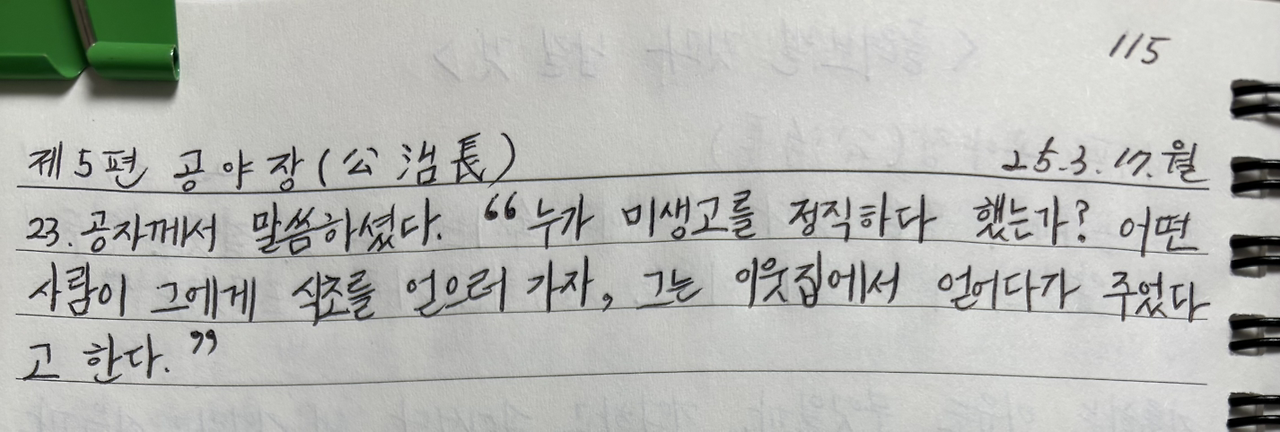 115
제5편 공야장(公冶長) 25.3.17.월
23. 공자께서 말씀하셨다. “누가 미생고를 정직하다 했는가? 어떤
사람이 그에게 식초를 얻으러 가자, 그는 이웃집에서 얻어다가 주었다
고 한다.”